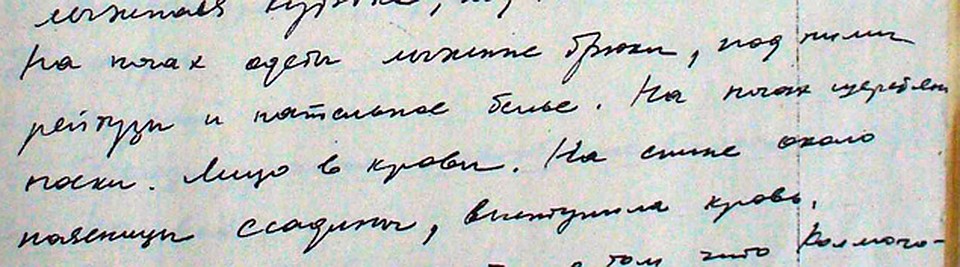 лыжная куртка,
На ногах одеты лыжные брюки, под ними
рейтузы и нательное белье. На ногах шерстян
носки. Лицо в крови. На спине около
поясницы ссадины, выступила кровь.
том что Колмого-